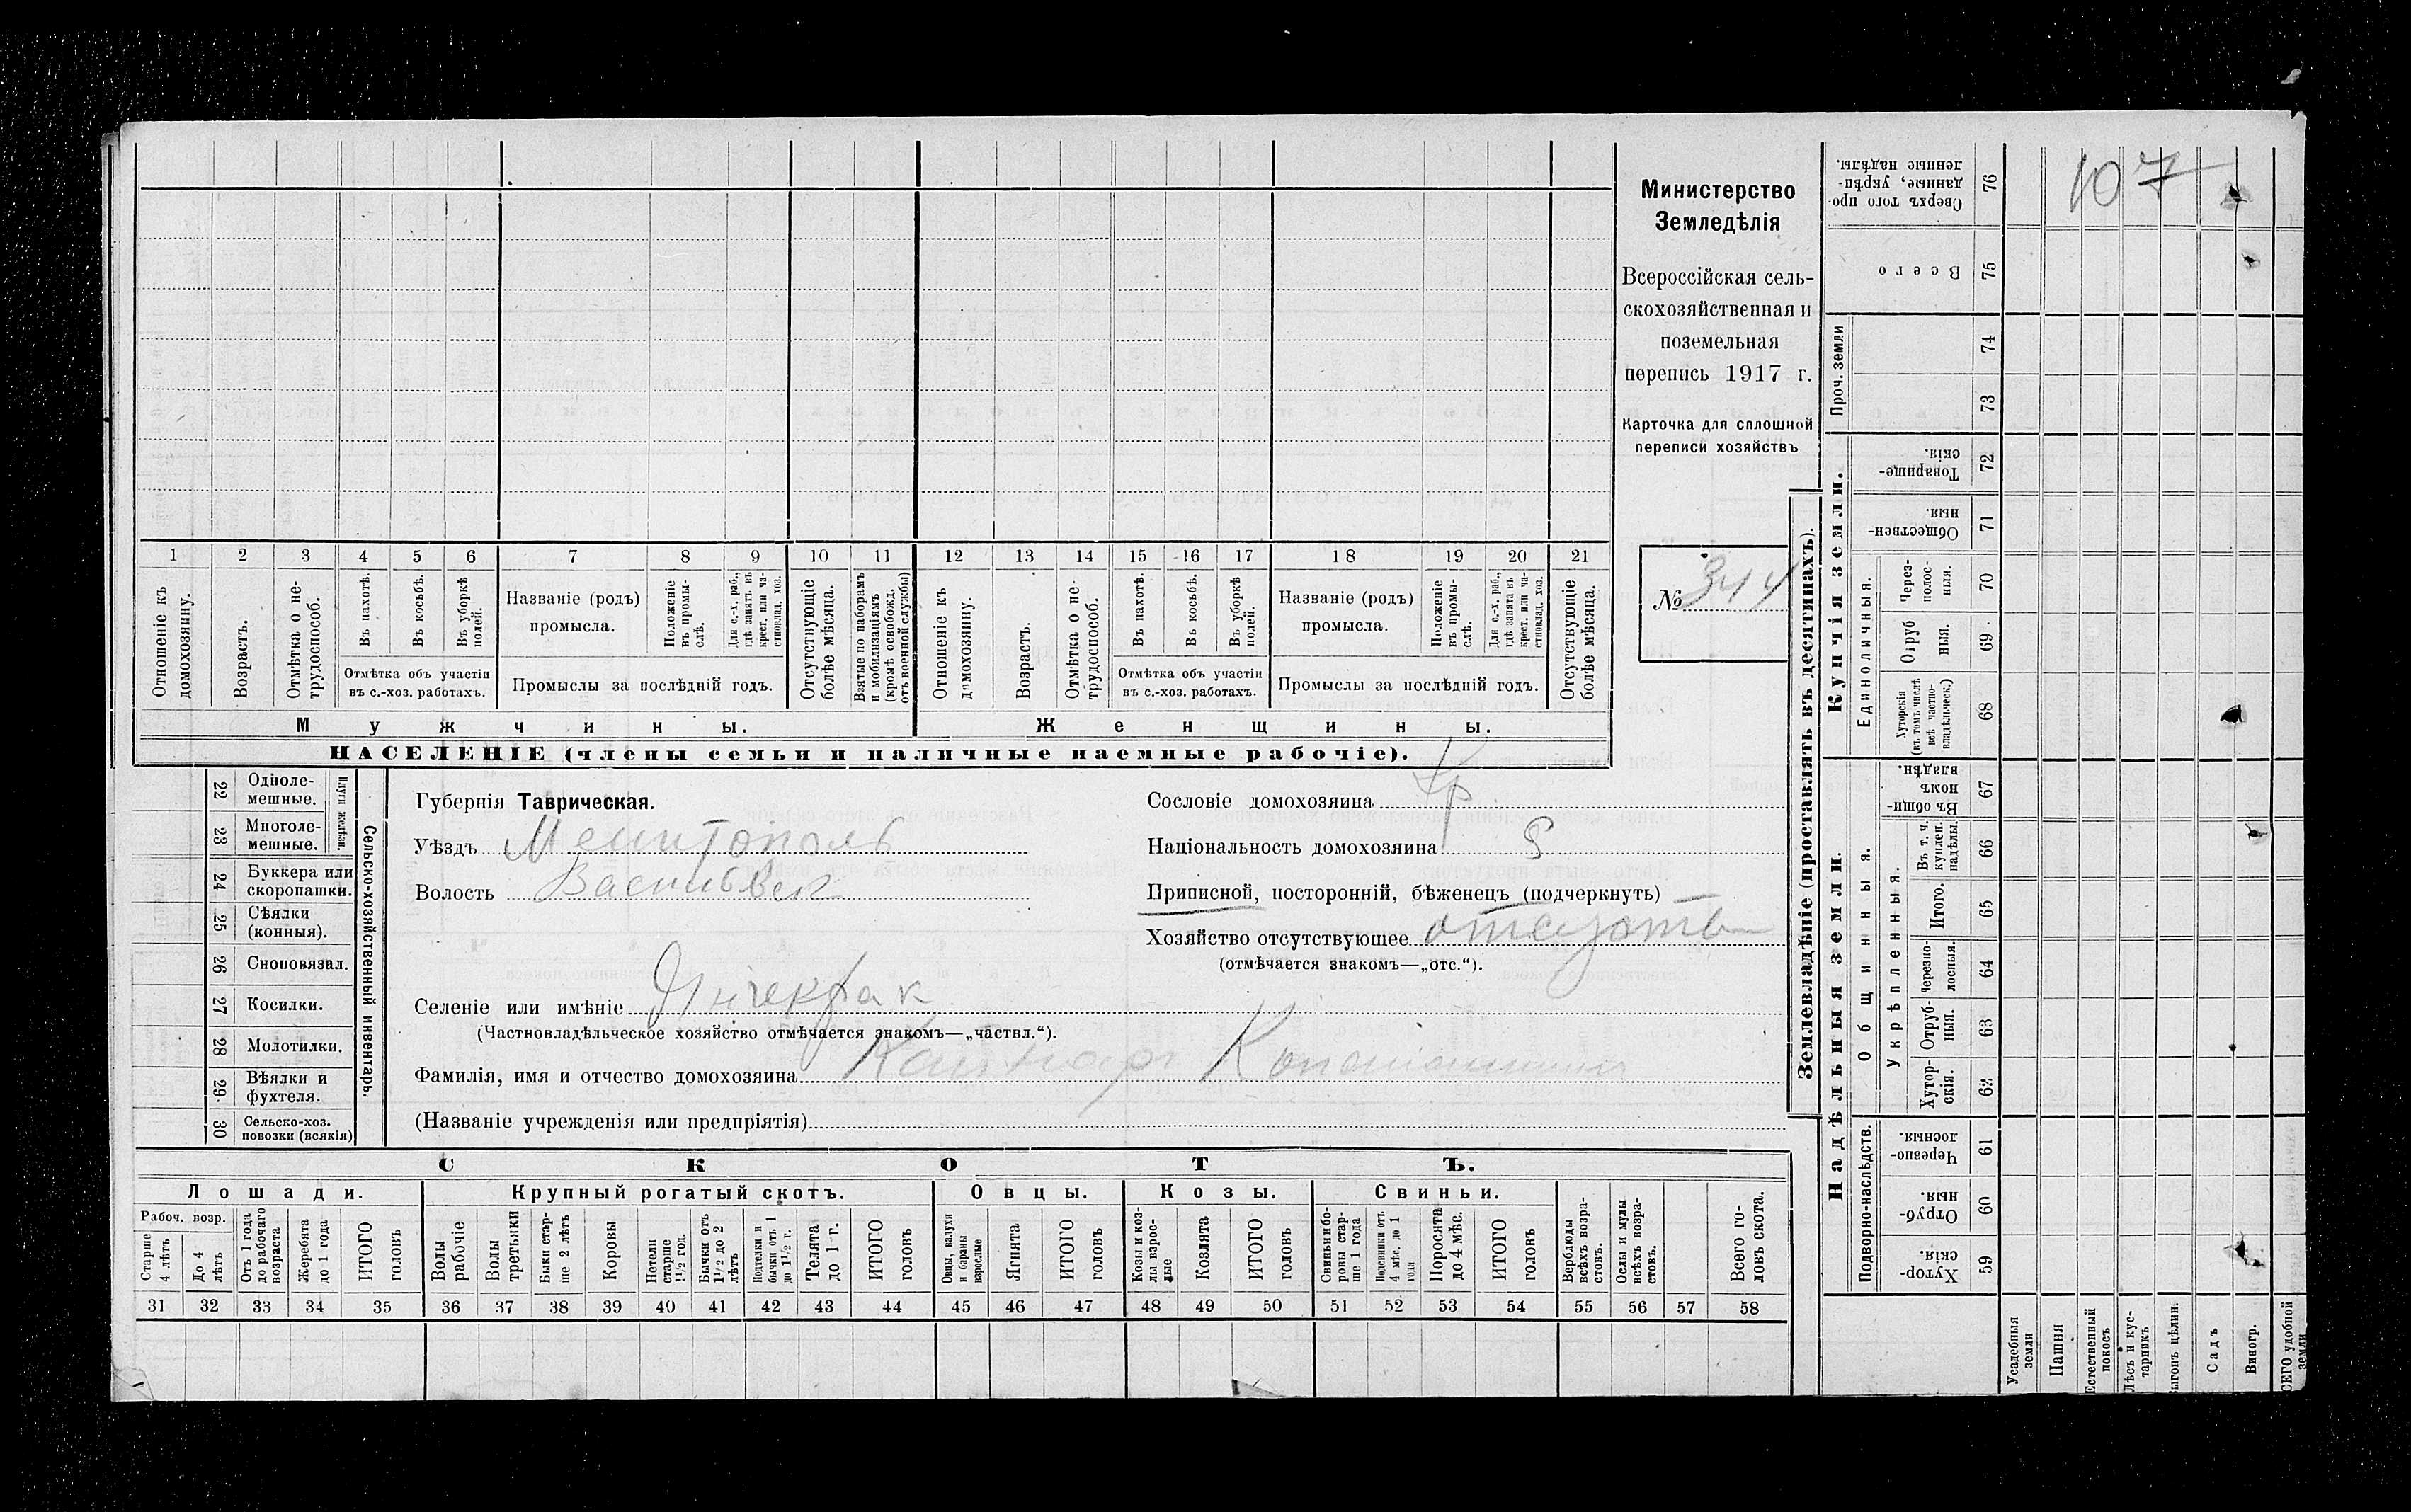 Министерство
Земледѣлія
Всероссійская сель-
скохозяйственная и
поземельная
перепись 1917 г.
Карточка для сплошной
переписи хозяйствъ
№ 344
107
1 2 3 4 5 6 7 8 9 10 11 12 13 14 15 16 17 18 19 20 21
Отношеніе къ домохозяину.
Возрастъ.
Отмѣтка о не-трудоспособ.
Въ пахотѣ.
Въ косьбѣ.
Въ уборкѣ полей.
Отмѣтка объ участіи
въ с.-хоз. работахъ.
Названіе (родъ)
промысла.
Положеніе въ промы-слѣ.
Для с.-х. раб., гдѣ занятъ въ крест. или ча-стновлад. хоз.
Промыслы за послѣдній годъ.
Отсутствующіе болѣе мѣсяца.
Взятые по наборамъ и мобилизаціямъ (кромѣ освобожд. отъ военной службы)
Отношеніе къ домохозяину.
Возрастъ.
Отмѣтка о не-трудоспособ.
Въ пахотѣ.
Въ косьбѣ.
Въ уборкѣ полей.
Отмѣтка объ участіи
въ с.-хоз. работахъ.
Названіе (родъ)
промысла.
Положеніе въ промы-слѣ.
Для с.-х. раб., гдѣ занята въ крест. или ча-стновлад. хоз.
Промыслы за послѣдній годъ.
Отсутствующіе болѣе мѣсяца.
Мужчины. Женщины.
НАСЕЛЕНІЕ (члены семьи и наличные наемные рабочіе).
22 Одноле-мешные.
23 Многоле-мешные.
Плуги желѣзн.
24 Буккера или скоропашки.
25 Сѣялки (конныя).
26 Сноповязал.
27 Косилки.
28 Молотилки.
29 Вѣялки и фухтеля.
30 Сельско-хоз. повозки (всякія)
Сельско-хозяйственный инвентарь.
Губернія Таврическая.
Уѣздъ Мелитополь
Волость Васильевск
Селеніе или имѣніе Янчекрак
(Частновладѣльческое хозяйство отмѣчается знакомъ—„частвл.“).
Фамилія, имя и отчество домохозяина
(Названіе учрежденія или предпріятія)
Сословіе домохозяина Кр
Національность домохозяина
Приписной, посторонній, бѣженецъ (подчеркнуть)
Хозяйство отсутствующее отсутств
(отмѣчается знакомъ—„отс.“).
СКОТЪ.
Лошади. Крупный рогатый скотъ. Овцы. Козы. Свиньи.
Рабоч. возр.
Старше 4 лѣтъ
До 4 лѣтъ
Отъ 1 года до рабочаго возраста
Жеребята до 1 года
ИТОГО головъ
Волы рабочіе
Волы третьяки
Быки стар-ше 2 лѣтъ
Коровы
Нетели старше 1½ год.
Бычки отъ 1½ до 2 лѣтъ
Подтелки и бычки отъ 1 до 1½ г.
Телята до 1 г.
ИТОГО головъ
Овцы, валухи и бараны взрослые
Ягнята
ИТОГО головъ
Козы и коз-лы взрос-лые
Козлята
ИТОГО головъ
Свиньи и бо-ровы стар-ше 1 года
Подсвинки отъ 4 мѣс. до 1 года
Поросята до 4 мѣс.
ИТОГО головъ
Верблюды всѣхъ возра-стовъ.
Ослы и мулы всѣхъ возра-стовъ.
Всего го-ловъ скота.
31 32 33 34 35 36 37 38 39 40 41 42 43 44 45 46 47 48 49 50 51 52 53 54 55 56 57 58
Землевладѣніе (проставлять въ десятинахъ).
Надѣльныя земли. Купчія земли. Проч. земли
Подворно-наслѣдств.
Общинныя.
Укрѣпленныя.
Единоличныя.
59 Хутор-скія.
60 Отруб-ныя.
61 Черезпо-лосныя.
62 Хутор-скія.
63 Отруб-ныя.
64 Черезпо-лосныя.
65 Итого.
66 Въ т. ч. куплен. надѣлы.
67 Въ общи-номъ владѣн.
68 Хуторскія (въ томъ числѣ всѣ частно-владѣльческ.)
69 Отруб ныя.
70 Через-полос-ныя.
71 Обществен-ныя.
72 Товарище-скія.
73
74
75 Всего
76 Сверхъ того про-данные, укрѣп-ленные надѣлы.
Усадебныя земли
Пашня
Естественный покосъ
Лѣсъ и кус-тарникъ
Выгонъ цѣлин.
Садъ
Виногр.
ВСЕГО удобной земли